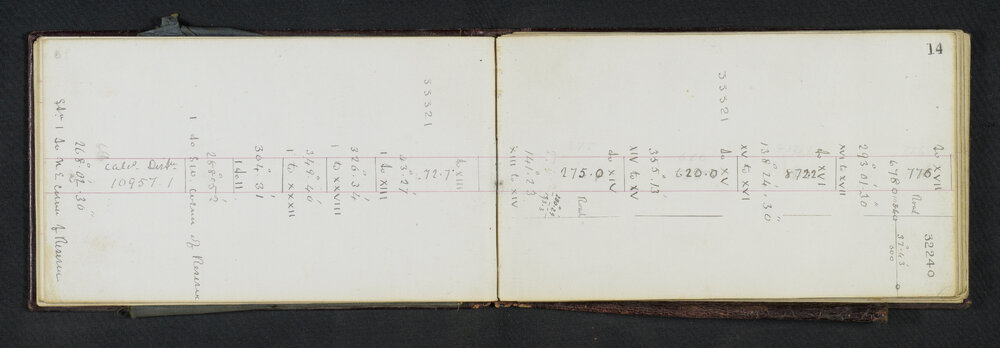 14
Stn 1 to N.E. corner of Reserve
268° 02' 30"
calcd. Distce.
10957.1
1 to S.W. corner of Reserve
268° 05' 2
1 to II
304° 31'
1 to XXII
349° 40'
1 to XXVIII
326° 34'
1 to XIII
23° 27'
33321
to XIII
72.7
XIII to XIV
141° 23'
275.0
Road
to XIV
XIV to XV
35° 13'
620.0
33321
to XV
XV to XVI
138° 24' 30"
8722
to XVI
XVI to XVII
29° 01' 30"
678.0
37° 43'
300
0
776
Road
to XVII
32240